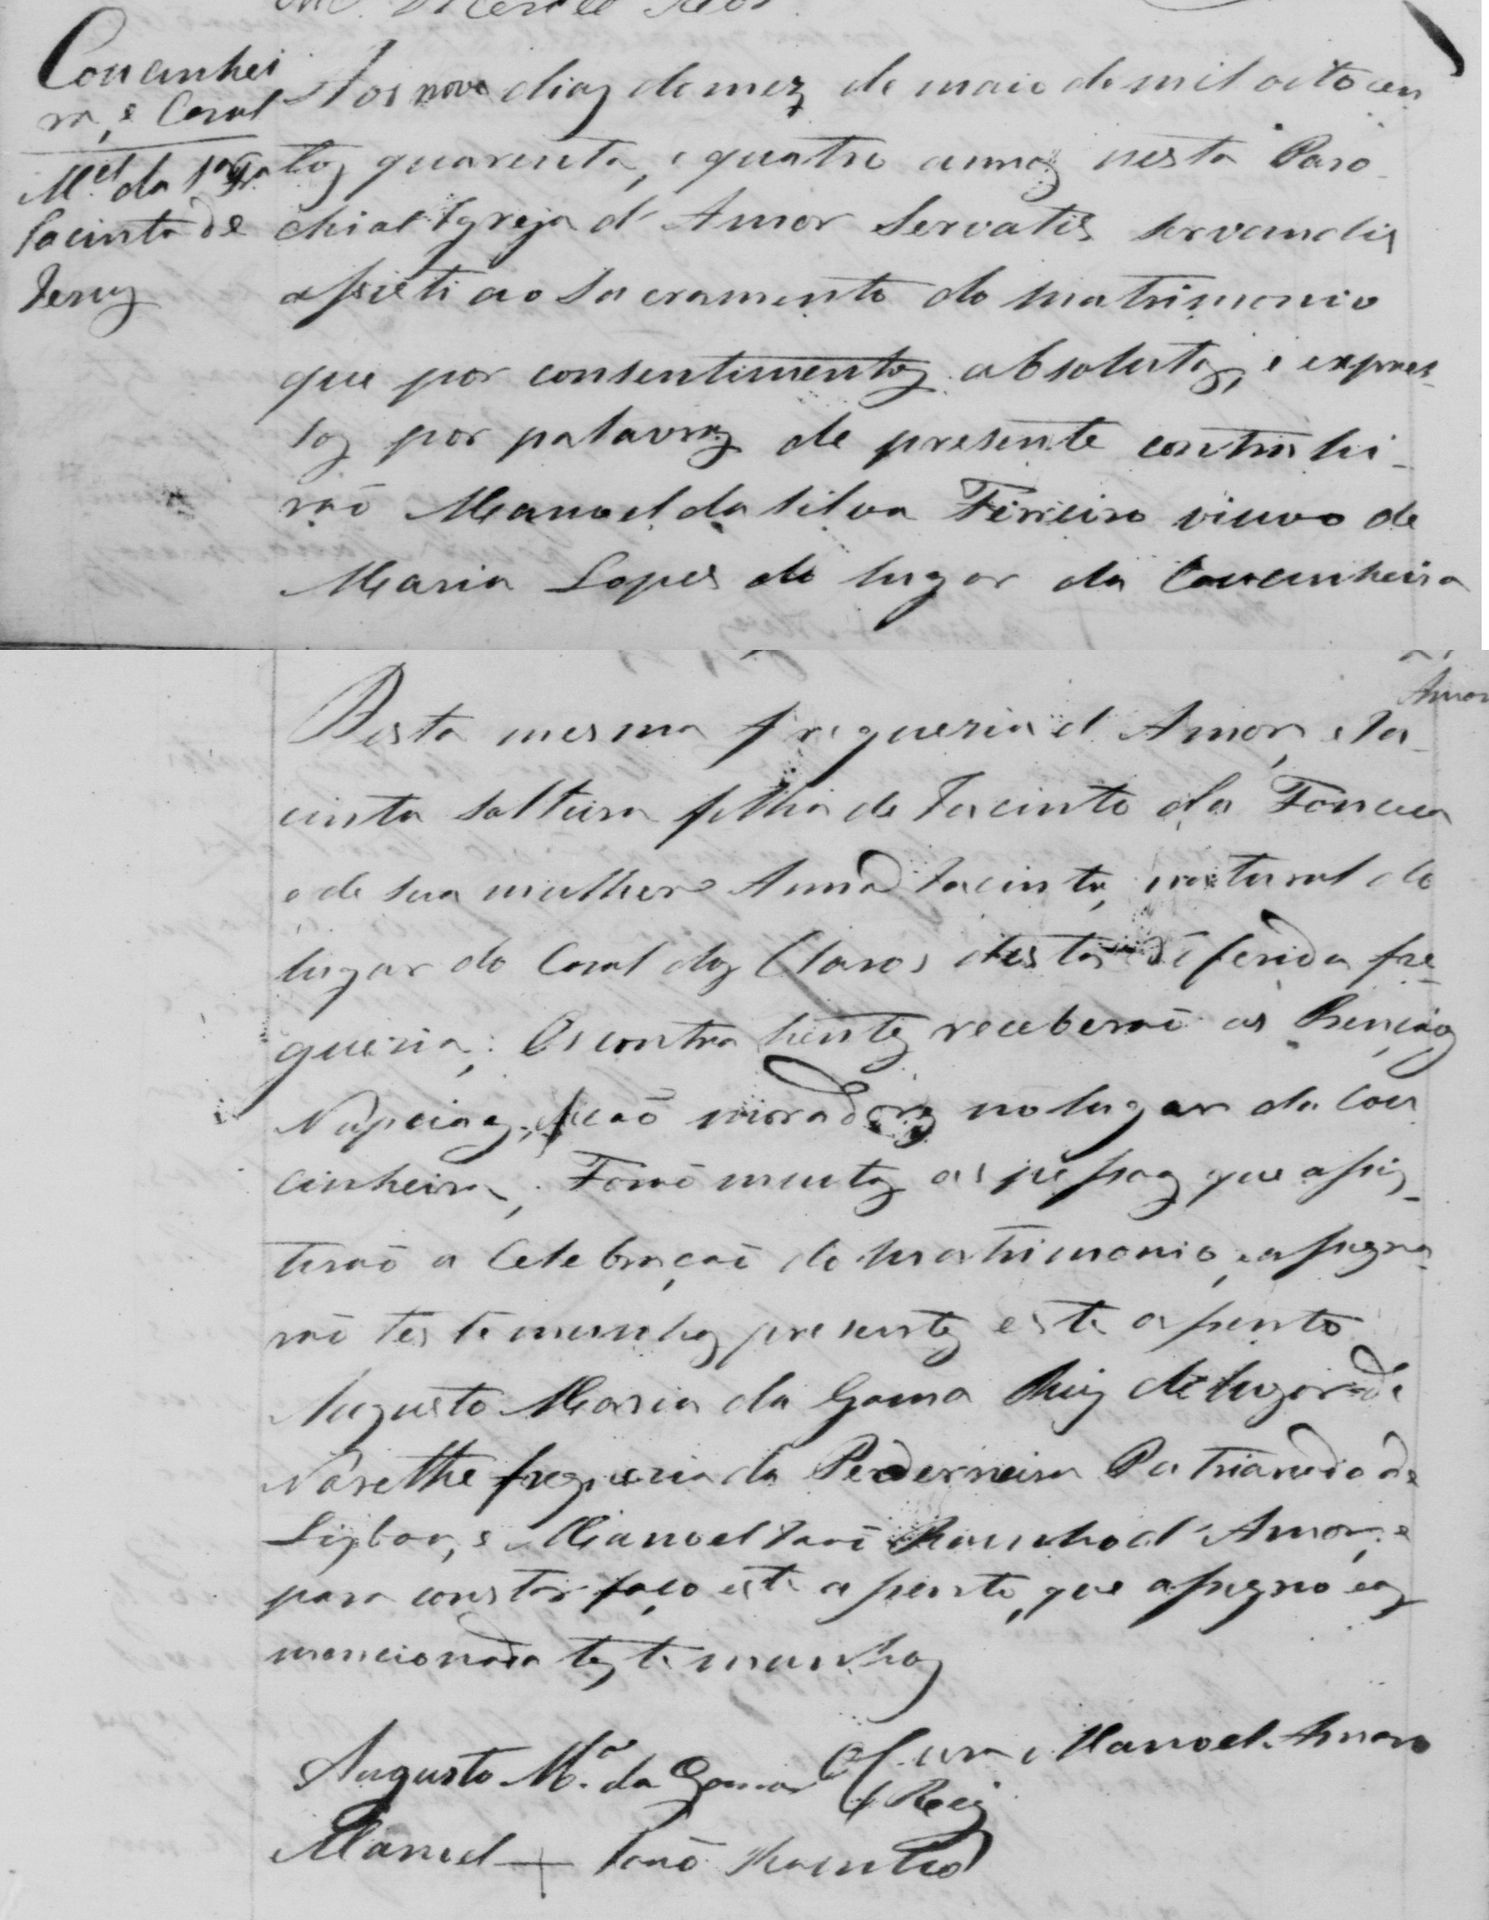 Coucinhei
ra, e Casal
M.el da S.a Fra.
Jacinta de
Jesuz
Aos nove diaz do mez de maio de mil oito cen
toz quarenta, e quatro annoz nesta Paro-
chial Igreja d'Amor Servatis servandis
assisti ao Sacramento do matrimonio
que por consentimentoz absolutoz, e expres-
soz por palavraz de presente contrahi-
raõ Manoel da Silva Ferreira viuvo de
Maria Lopes do lugar da Coucinheira
Amor
Desta mesma freguezia d'Amor, e Ja-
cinta solteira filha de Jacinto da Fonceca
e de sua mulher Anna Jacinta, natural do
lugar do Casal doz Claros desta referida fre-
guezia; Os contrahentez receberaõ as Bençaoz
Nupciaez, ficaõ moradorez no lugar da Cou
cinheira, Foraõ muntaz as pessoaz que assiz-
tiraõ a Celebraçaõ do Matrimonio, e assigna-
raõ testemunhaz presentez este assento
Augusto Maria da Gama Reiz do lugar da
Narethe freguezia da Pederneira Patriarcado de
Lizboa, e Manoel Joaõ Rainho d'Amor, e
para constar faço este assento, que assigno eaz
mencionada teztemunhaz
Augusto M.a da Gama O Cura, Manoel Amaro
Reiz
Manoel + Joaõ Rainho